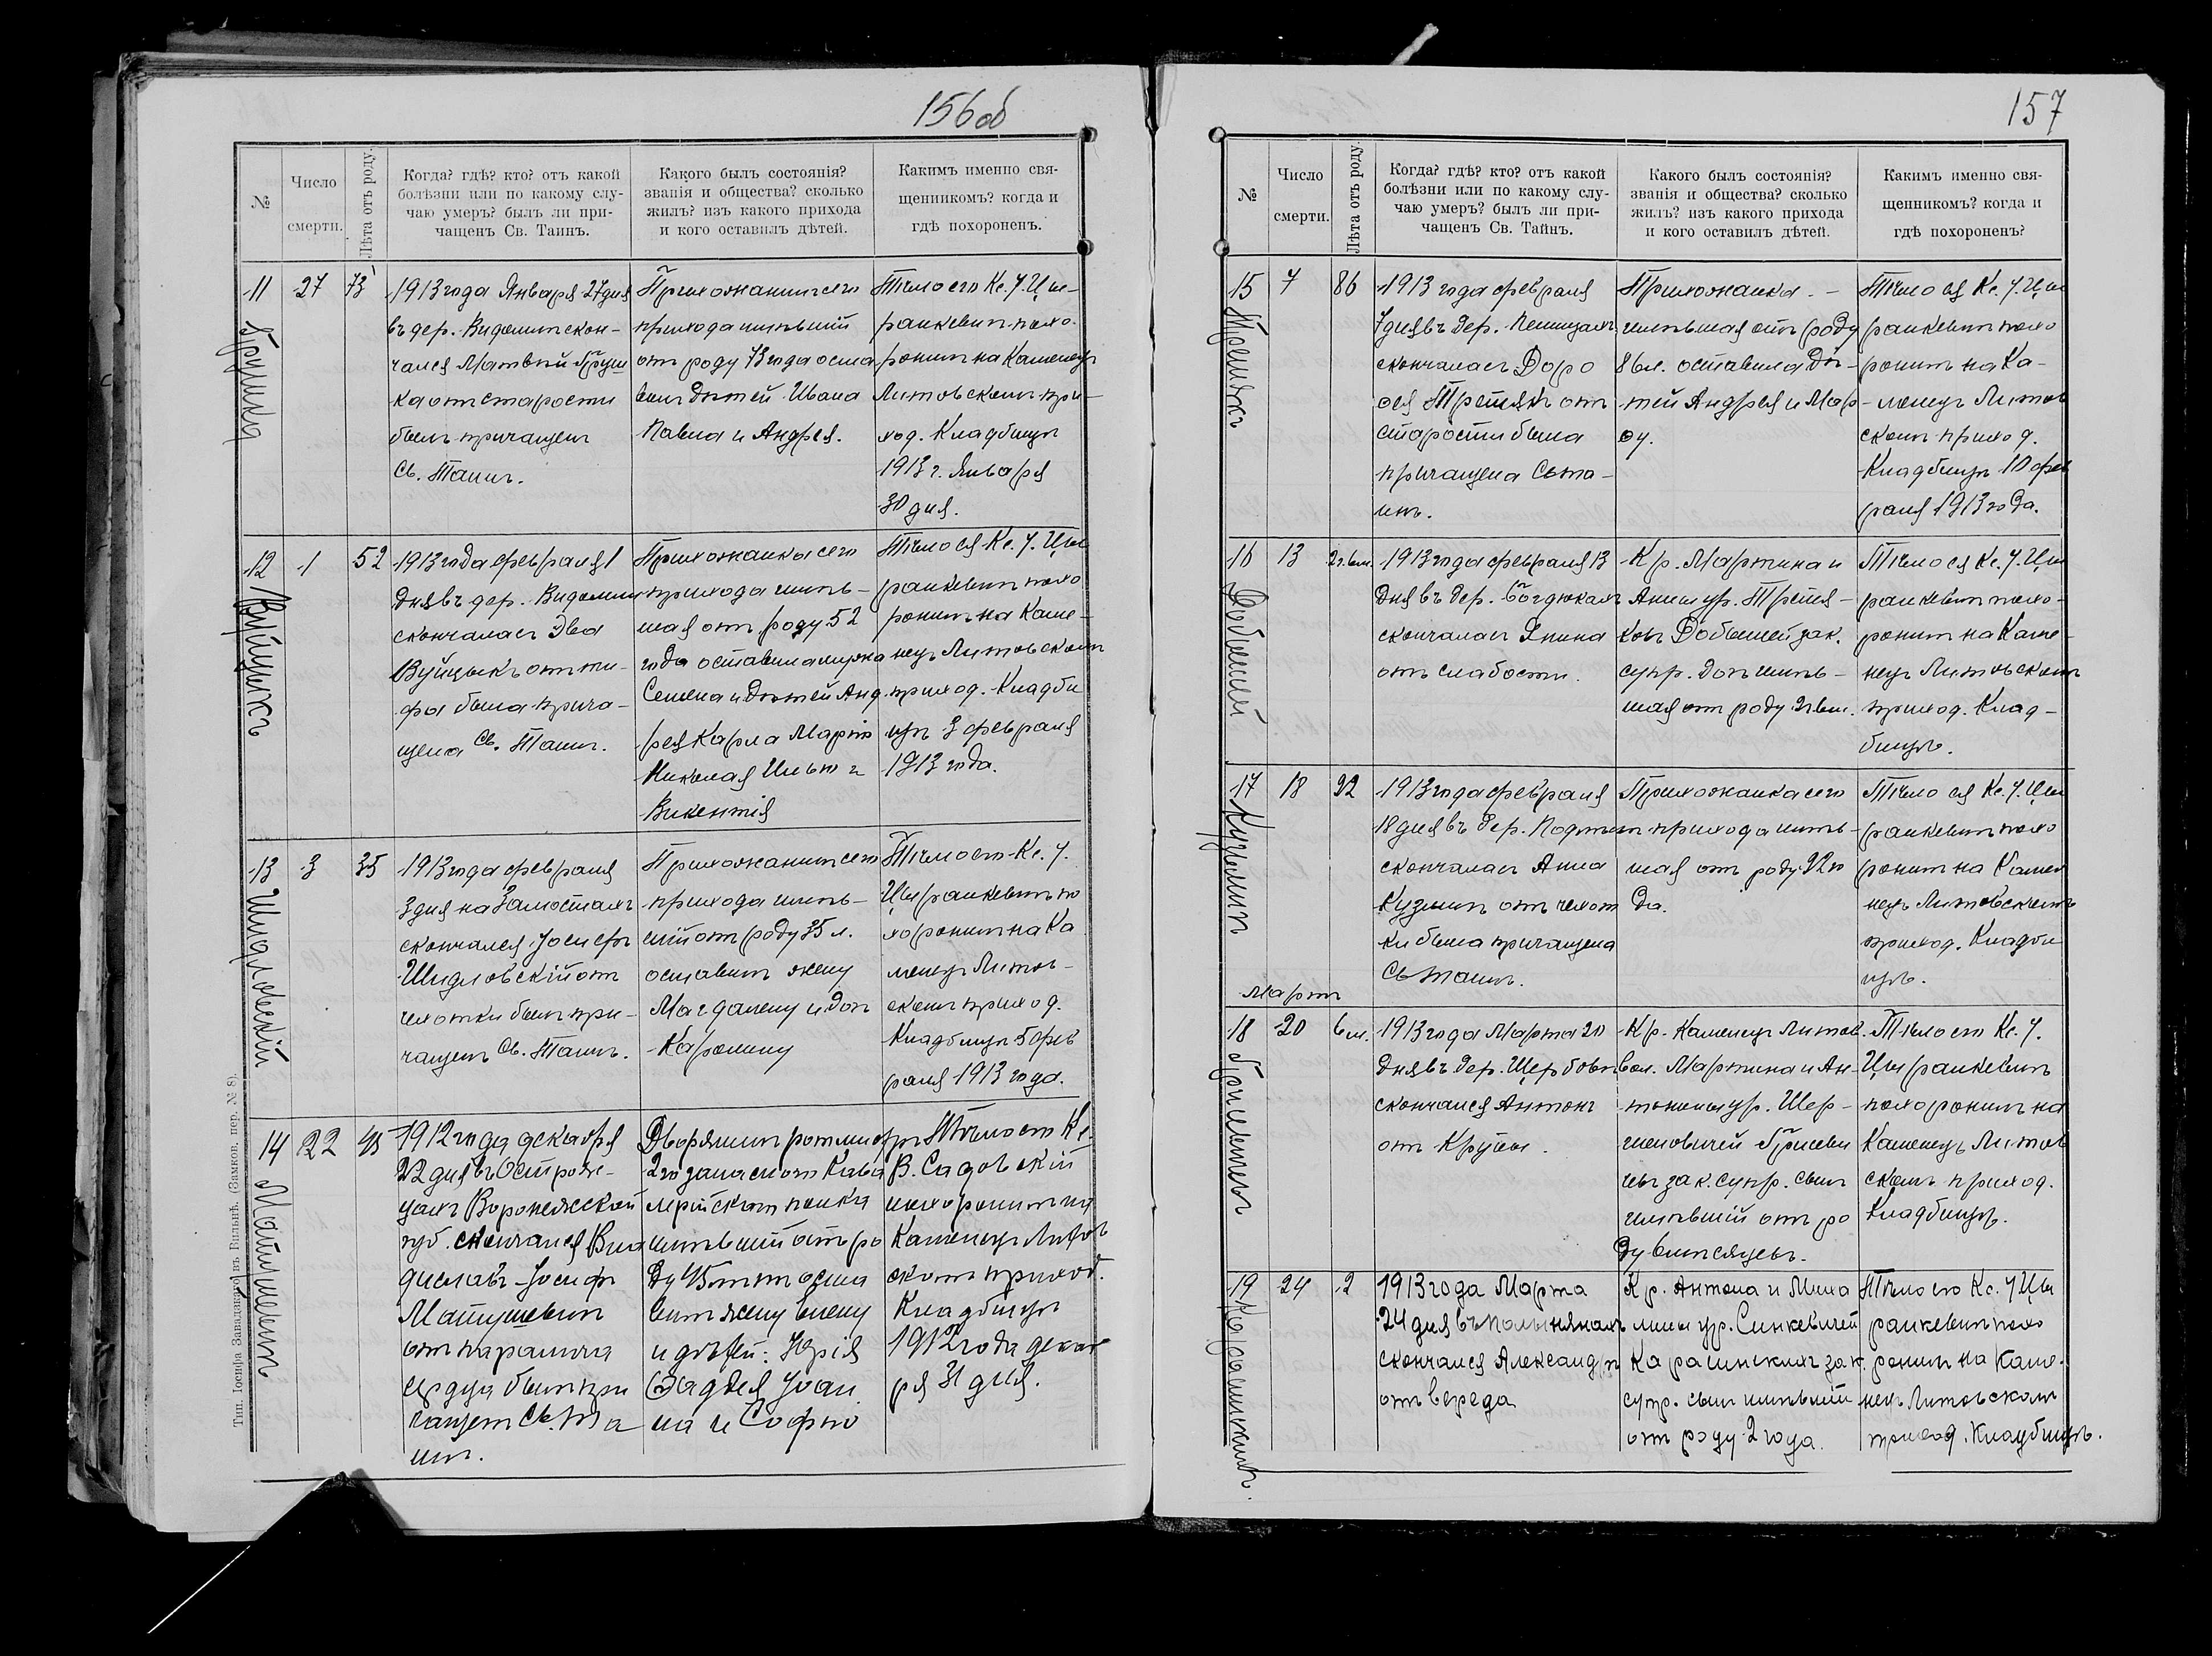 156 об
№
Число
смерти.
Лѣта отъ роду.
Когда? гдѣ? кто? отъ какой
болѣзни или по какому слу-
чаю умеръ? былъ ли при-
чащенъ Св. Таинъ.
Какого былъ состоянія?
званія и общества? сколько
жилъ? изъ какого прихода
и кого оставилъ дѣтей.
Какимъ именно свя-
щенникомъ? когда и
гдѣ похороненъ.
11
27
73
Грушка
1913 года Января 27 дня
въ дер. Видомлѣ скон-
чался Матвѣй Груш
ка отъ старости
былъ причащенъ
Св. Таинъ.
Прихожанинъ сего
прихода жившій
отъ роду 73 года оста
вилъ дѣтей Ивана
Павла и Андрея.
Тѣло его Кс. У. Цы-
ранкевичъ похо-
ронилъ на Каменецъ
Литовскомъ при-
ход. Кладбищѣ
1913 г. Января
30 дня.
12
1
52
Вуйцикъ
1913 года февраля 1
дня въ дер. Видомлѣ
скончалась Эва
Вуйцыкъ отъ ти-
фа была прича-
щена Св. Таинъ.
Прихожанка сего
прихода жив-
шая отъ роду 52
года оставила мужа
Семена и дѣтей Анд
рея Карла Марію
Николая Илью и
Викентія
Тѣло ея Кс. У. Цы
ранкевичъ похо
ронилъ на Каме-
нецъ Литовскомъ
приход. Кладби
щѣ 3 февраля
1913 года.
13
3
35
Шидловскій
1913 года февраля
3 дня на Замостахъ
скончался Іосифъ
Шидловскій отъ
чахотки былъ при-
чащенъ Св. Таинъ.
Прихожанинъ сего
прихода жив-
шій отъ роду 35 л.
оставилъ жену
Магдалену и доч
Каролину
Тѣло его Кс. У.
Цыранкевичъ по
хоронилъ на Ка
менецъ Литов-
скомъ приход.
Кладбищѣ 5 фев
раля 1913 года.
14
22
45
Матушевичъ
1912 года декабря
22 дня въ Острого-
Воронежской
губ. скончался Вла
диславъ-Іосифъ
Матушевичъ
отъ паралича
сердца былъ при
чащенъ Св. Та
инъ.
Дворянинъ ротмистръ
2го запаснаго Кава
лерійскаго полка
жившій отъ ро
ду 45 лѣтъ оста
вилъ жену Елену
и дѣтей: Юрія
Фаддея Іоан
на и Софію
Тѣло его Кс.
В. Садовскій
похоронилъ на
Каменецъ Литов
скомъ приход.
Кладбищѣ
1912 года декаб
ря 31 дня.
Тип. Іосифа Завадзкаго въ Вильнѣ.
157
№
Число
смерти.
Лѣта отъ роду.
Когда? гдѣ? кто? отъ какой
болѣзни или по какому слу-
чаю умеръ? былъ ли при-
чащенъ Св. Тайнъ.
Какого былъ состоянія?
званія и общества? сколько
жилъ? изъ какого прихода
и кого оставилъ дѣтей.
Какимъ именно свя-
щенникомъ? когда и
гдѣ похороненъ?
15
7
86
Третякъ
1913 года февраля
7 дня въ дер.
скончалась Доро
ѳея Третякъ отъ
старости была
причащена Св та-
инъ.
Прихожанка -
жившая отъ роду
86 л. оставила дѣ-
тей Андрея и Мар
ѳу.
Тѣло ея Кс. У. Цы
ранкевичъ похо
ронилъ на Ка-
менецъ Литов
скомъ приход.
Кладбищѣ 10 фев
раля 1913 года.
16
13
2 г. 6 м.
1913 года февраля 13
дня въ дер. Богдюкахъ
скончалась Янина
отъ слабости.
Кр. Мартина и
Анны ур. Третя-
ковъ зак.
супр. доч жив-
шая отъ роду 2 г. 6 м.
Тѣло ея Кс. У. Цы
ранкевичъ похо-
ронилъ на Каме-
нецъ Литовскомъ
приход. Клад-
бищѣ.
17
18
22
Кузьмичъ
1913 года февраля
18 дня въ дер.
скончалась Анна
Кузмич отъ чахот
ки была причащена
Св таинъ.
Прихожанка сего
прихода жив-
шая отъ роду 22 го
да.
Тѣло ея Кс. У. Цы
ранкевичъ похо
ронилъ на Камен
нецъ Литовскомъ
приход. Кладби
щѣ.
Мартъ
18
20
6 м.
Гриневичъ
1913 года Марта 20
дня въ дер. Щербово
скончался Антонъ
отъ Крупы.
Кр. Каменецъ Литов.
вол. Мартина и Ан-
тонины ур. Шер-
шеновичей Гриневи
чы зак. супр. сынъ
жившій отъ ро
ду 6 мѣсяцевъ.
Тѣло его Кс. У.
Цыранкевичъ
похоронилъ на
Каменецъ Литов
скомъ приход.
Кладбищѣ.
19
24
2
1913 года Марта
24 дня въ
скончался Александръ
отъ вереда
Кр. Антона и Миха
лины ур. Синкевичей
зак.
супр. сынъ жившій
отъ роду 2 года.
Тѣло его Кс. У Цы
ранкевичъ похо
ронилъ на Каме-
нецъ Литовскомъ
приход. Кладбищѣ.